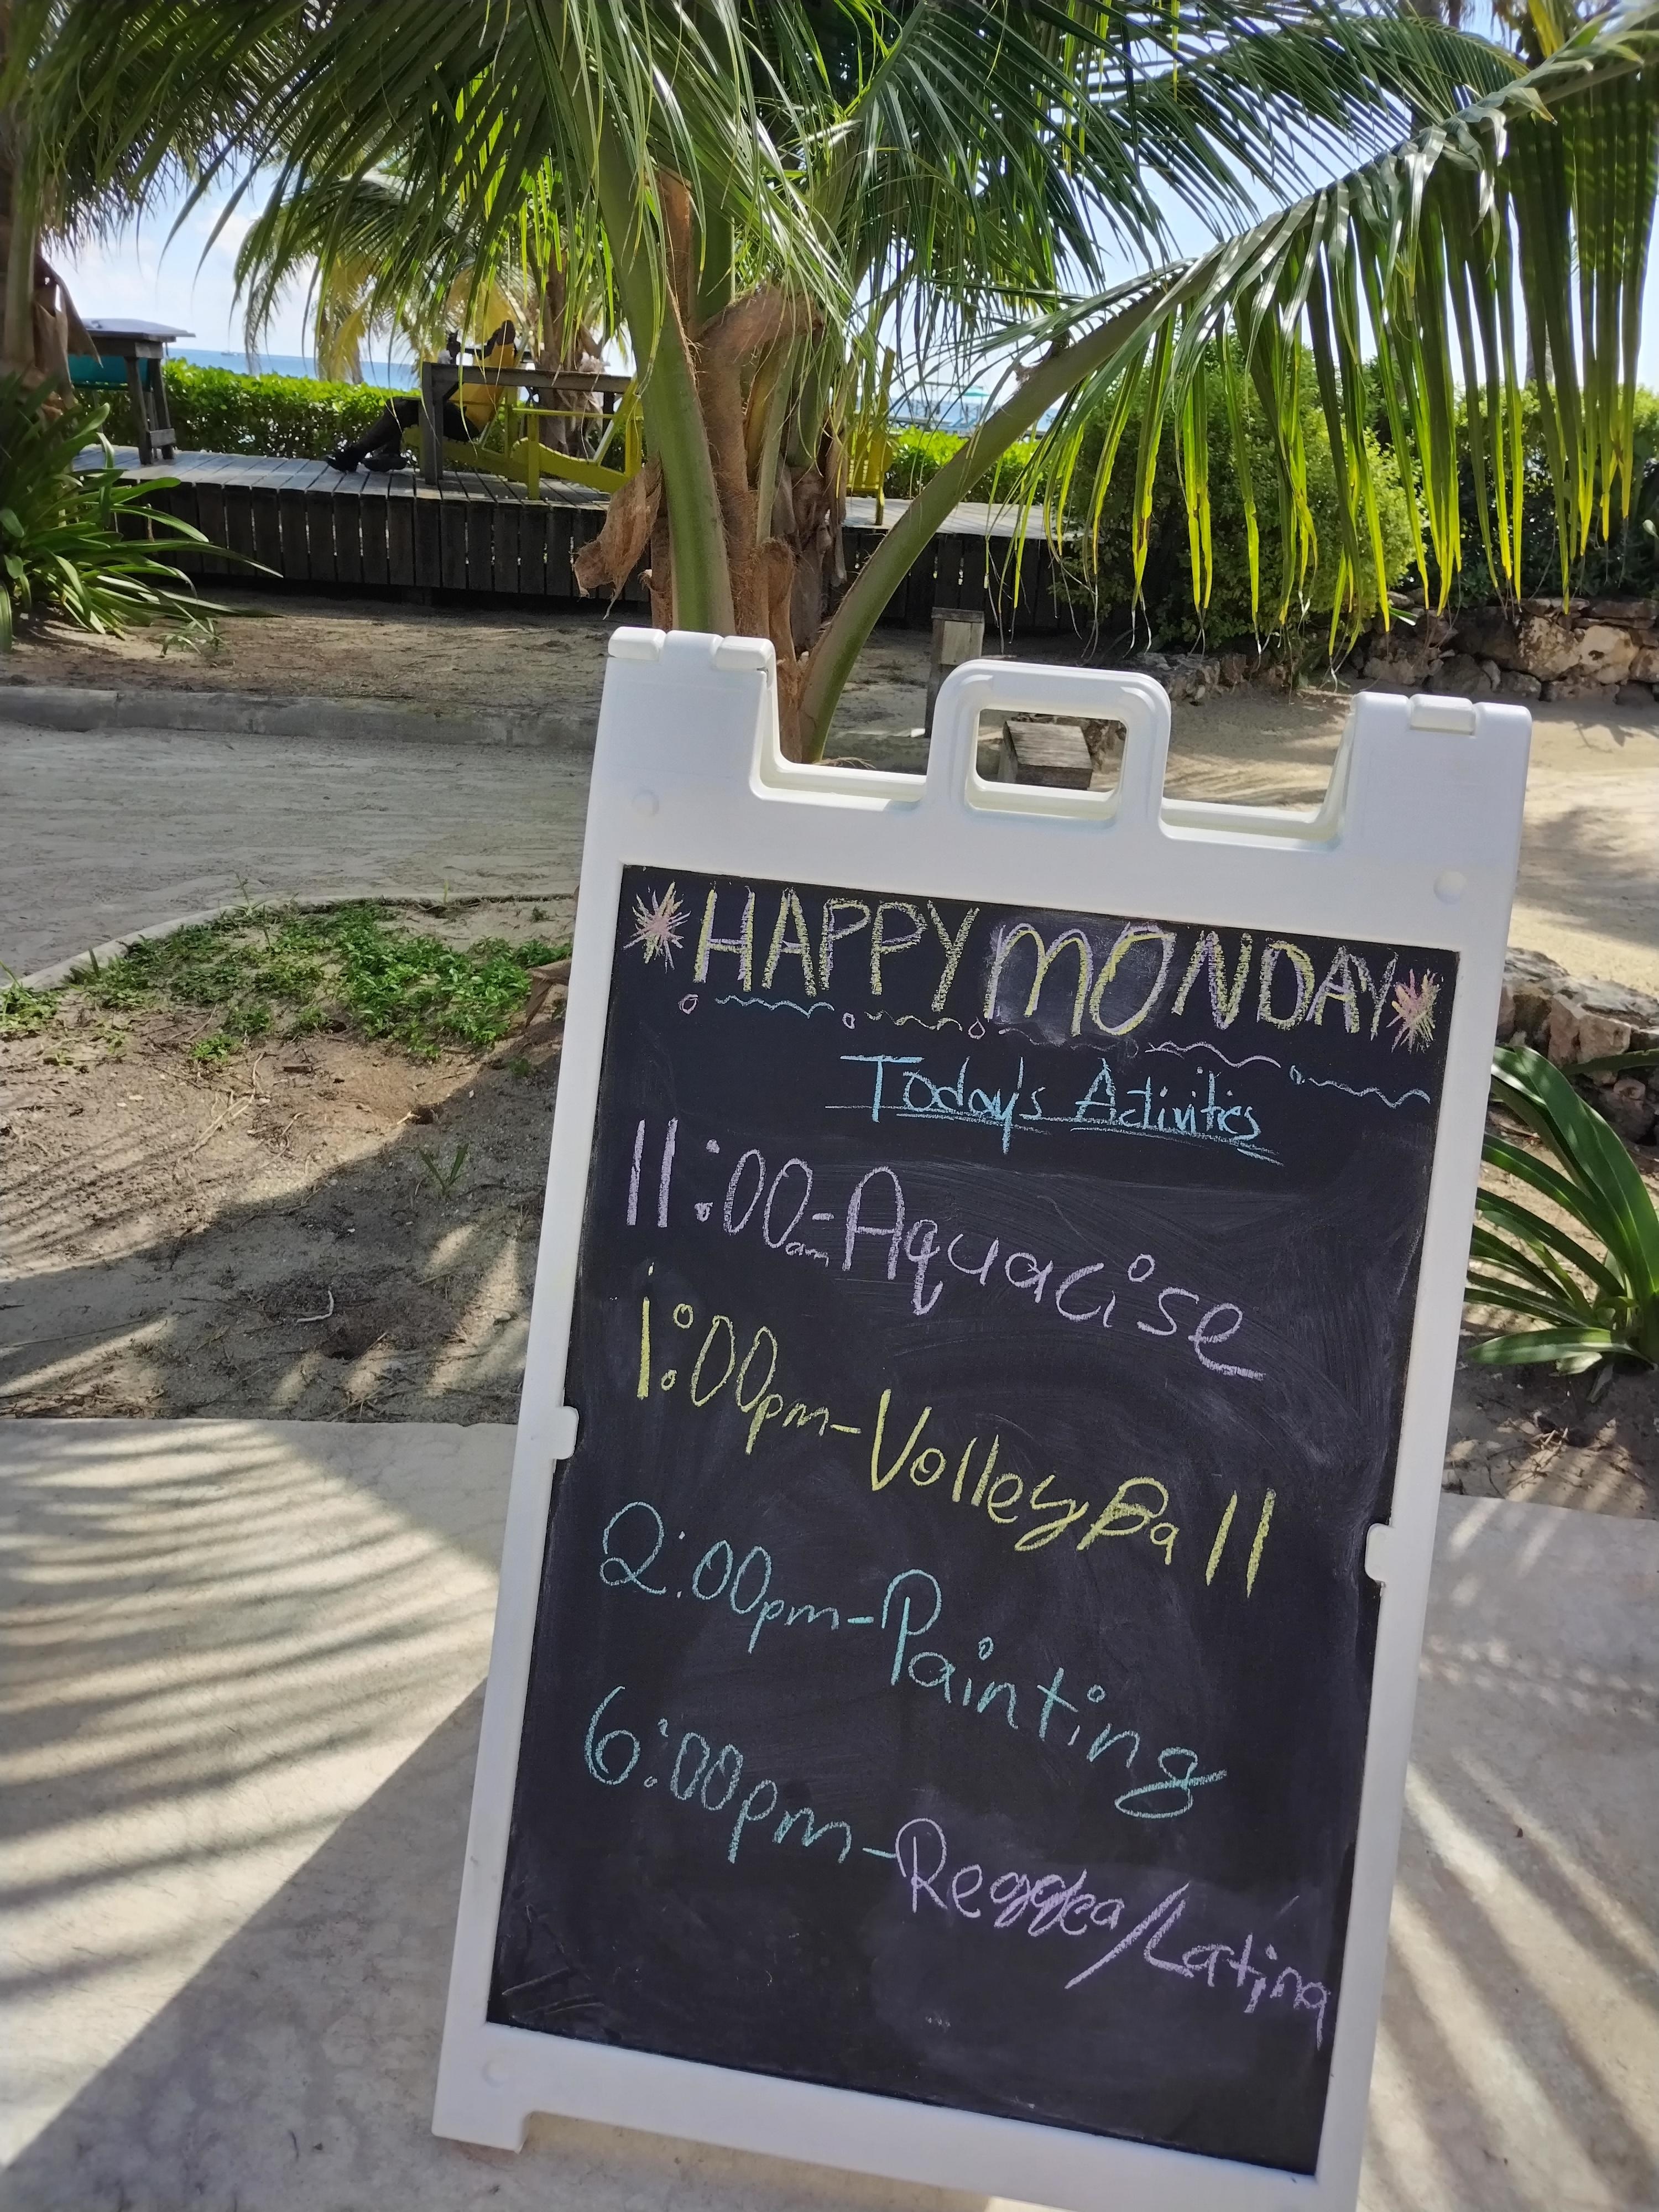 HAPPY MONDAY
Today's Activities
11:00am-Aquacise
1:00pm-VolleyBall
2:00pm-Painting
6:00pm-Reggea/Latina